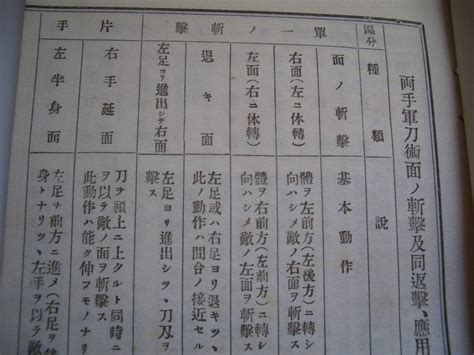 両手軍刀術面ノ斬擊及同返擊、應用
區分
種類
說
單一ノ斬擊
面ノ斬擊
基本動作
右面(左ニ体轉)
體ヲ左前方(左後方)ニ轉シ
向ハシメ敵ノ右面ヲ斬擊
左面(右ニ体轉)
體ヲ右前方(右後方)ニ轉シ
向ハシメ敵ノ左面ヲ斬擊
退キ面
左足或ハ右足ヨリ退キツヽ、
此ノ動作ハ間合ノ接近セル
左足ヨリ進出シテ右面
左足ヨリ進出シツヽ、刀刃ヲ
擊ス
片手
右手延面
刀ヲ頭上ニ上クルト同時ニ
ヲ以テ敵ノ面ヲ斬擊ス
此動作ハ能ク伸フモノナリ
左半身面
左足ヲ左前方ニ進メ(右足ヲ
身トナリツヽ、左手ヲ以テ